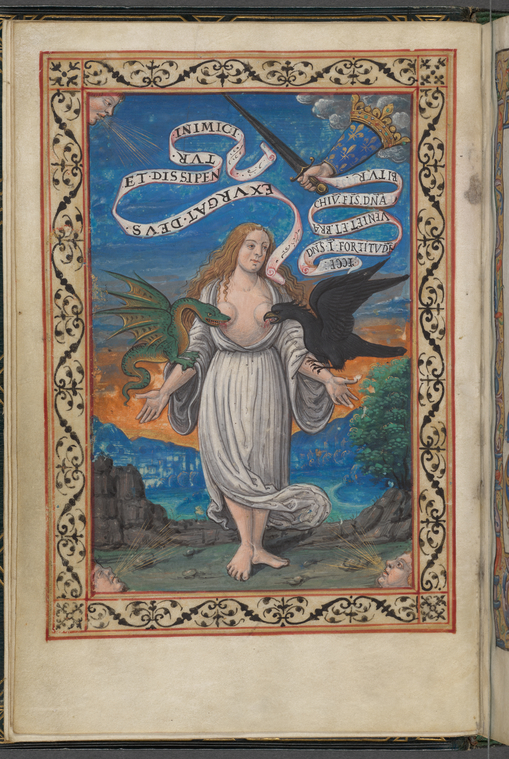 EXVRGAT·DEVS·
ET·DISSIPEN
TVR·
INIMICI
ECCE
DNS·I·FORTITVDE
VENIET·ET·BRA
CHIV·EIS·DNA
BITVR·